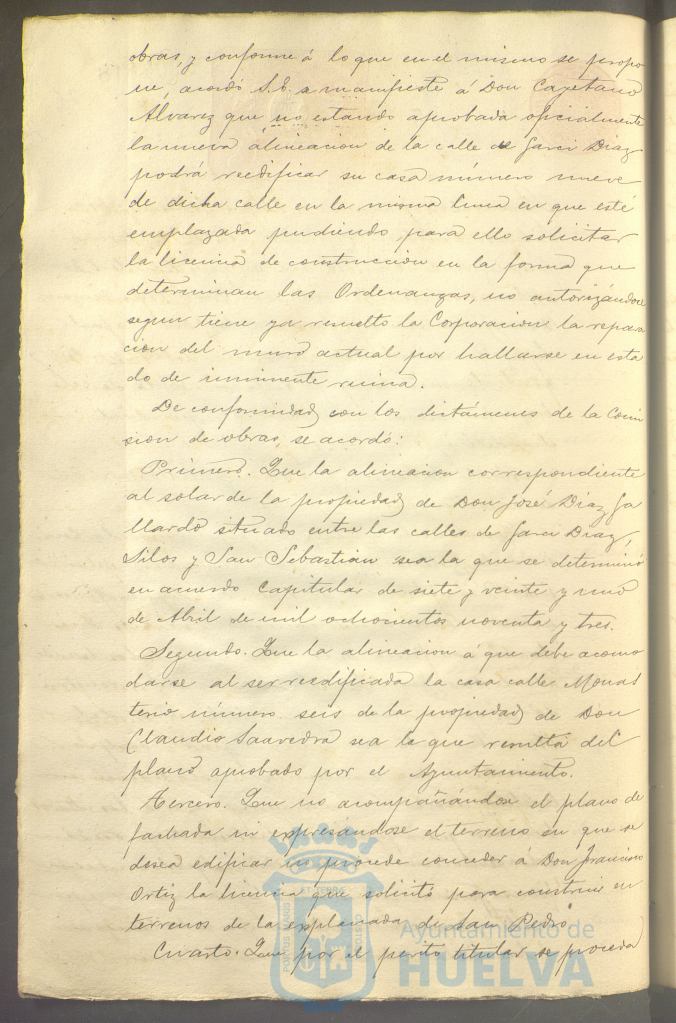 obras, y conforme á lo que en el mismo se propo
ne, acordó S.E. se manifieste á Don Cayetano
Alvarez que no estando aprobada oficialmente
la nueva alineacion de la calle de Garci Diaz
podrá reedificar su casa número nueve
de dicha calle en la misma linea en que esté
emplazada pudiendo para ello solicitar
la licencia de construccion en la forma que
determinan las Ordenanzas, no autorizándose
segun tiene ya resuelto la Corporacion la repara
cion del muro actual por hallarse en esta
do de inminente ruina.
De conformidad con los dictámenes de la Comi
sion de obras, se acordó:
Primero. Que la alineacion correspondiente
al solar de la propiedad de Don José Diaz Ga
llardo situado entre las calles de Garci Diaz,
Silos y San Sebastian sea la que se determinó
en acuerdo Capitular de siete y veinte y uno
de Abril de mil ochocientos noventa y tres.
Segundo. Que la alineacion á que debe acomo
darse al ser reedificada la casa calle Monas
terio número seis de la propiedad de Don
Claudio Saavedra sea la que resulta del
plano aprobado por el Ayuntamiento.
Tercero. Que no acompañándose el plano de
fachada ni expresándose el terreno en que se
desea edificar no procede conceder á Don Francisco
Ortiz la licencia que solicitó para construir en
terrenos de la explanada de San Pedro
Cuarto. Que por el perito titular se proceda
Ayuntamiento de
HUELVA